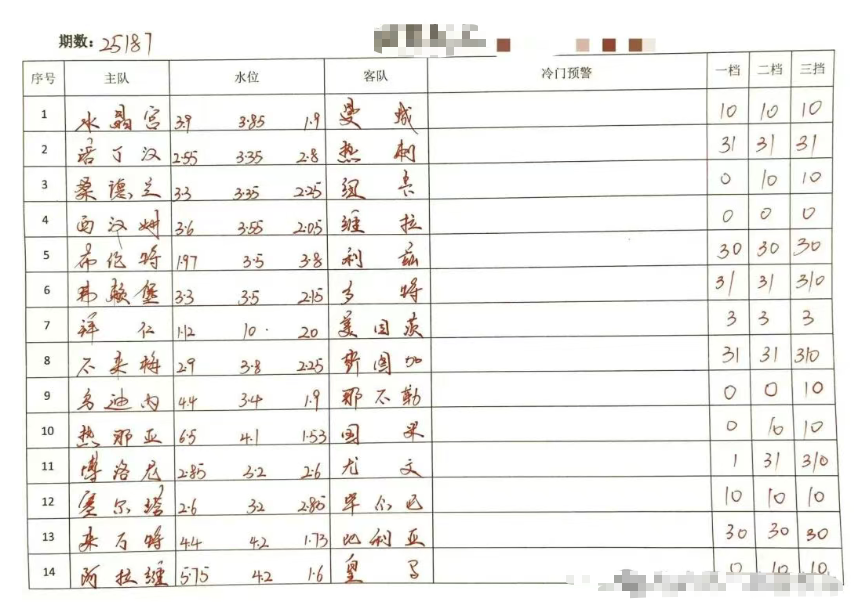 期数: 25187
序号 主队 水位 客队 冷门预警 一档 二档 三挡
1 水晶宫 3.9 3.85 1.9 曼城 10 10 10
2 诺丁汉 2.55 3.35 2.8 热刺 31 31 31
3 桑德兰 3.3 3.35 2.25 纽卡 0 10 10
4 西汉姆 3.6 3.55 2.05 维拉 0 0 0
5 布伦特 1.97 3.5 3.8 利兹 30 30 30
6 弗赖堡 3.3 3.5 2.15 多特 31 31 310
7 拜仁 1.12 10. 20 美因茨 3 3 3
8 不来梅 2.9 3.8 2.25 斯图加 31 31 310
9 乌迪内 4.4 3.4 1.9 那不勒 0 0 10
10 热那亚 6.5 4.1 1.53 国米 0 10 10
11 博洛尼 2.85 3.2 2.6 尤文 1 31 310
12 塞尔塔 2.6 3.2 2.85 毕尔巴 10 10 10
13 莱万特 4.4 4.2 1.73 比利亚 30 30 30
14 阿拉维 5.75 4.2 1.6 皇马 0 10 10